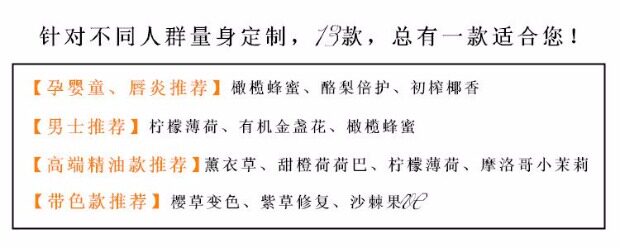 针对不同人群量身定制，13款，总有一款适合您！
【孕婴童、唇炎推荐】橄榄蜂蜜、酪梨倍护、初榨椰香
【男士推荐】柠檬薄荷、有机金盏花、橄榄蜂蜜
【高端精油款推荐】薰衣草、甜橙荷荷巴、柠檬薄荷、摩洛哥小茉莉
【带色款推荐】樱草变色、紫草修复、沙棘果VE